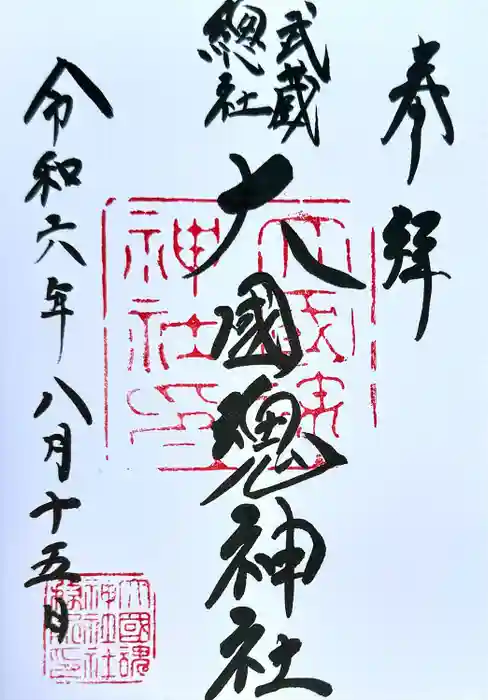 奉拝
武蔵
總社
大國魂神社
令和六年八月十五日
大國魂
神社印
大國魂
神社社